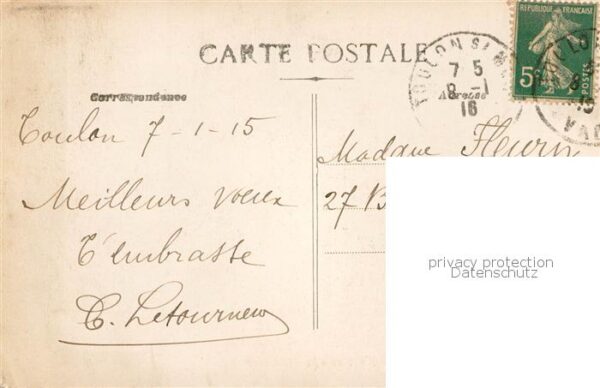 CARTE POSTALE
Correspondance
Adresse
RÉPUBLIQUE FRANÇAISE
5
TOULON S
7 5
8 -1
16
Toulon 7-1-15
Meilleurs voeux
T'embrasse
Letourneur
Madame Fleury
27 B
privacy protection
Datenschutz